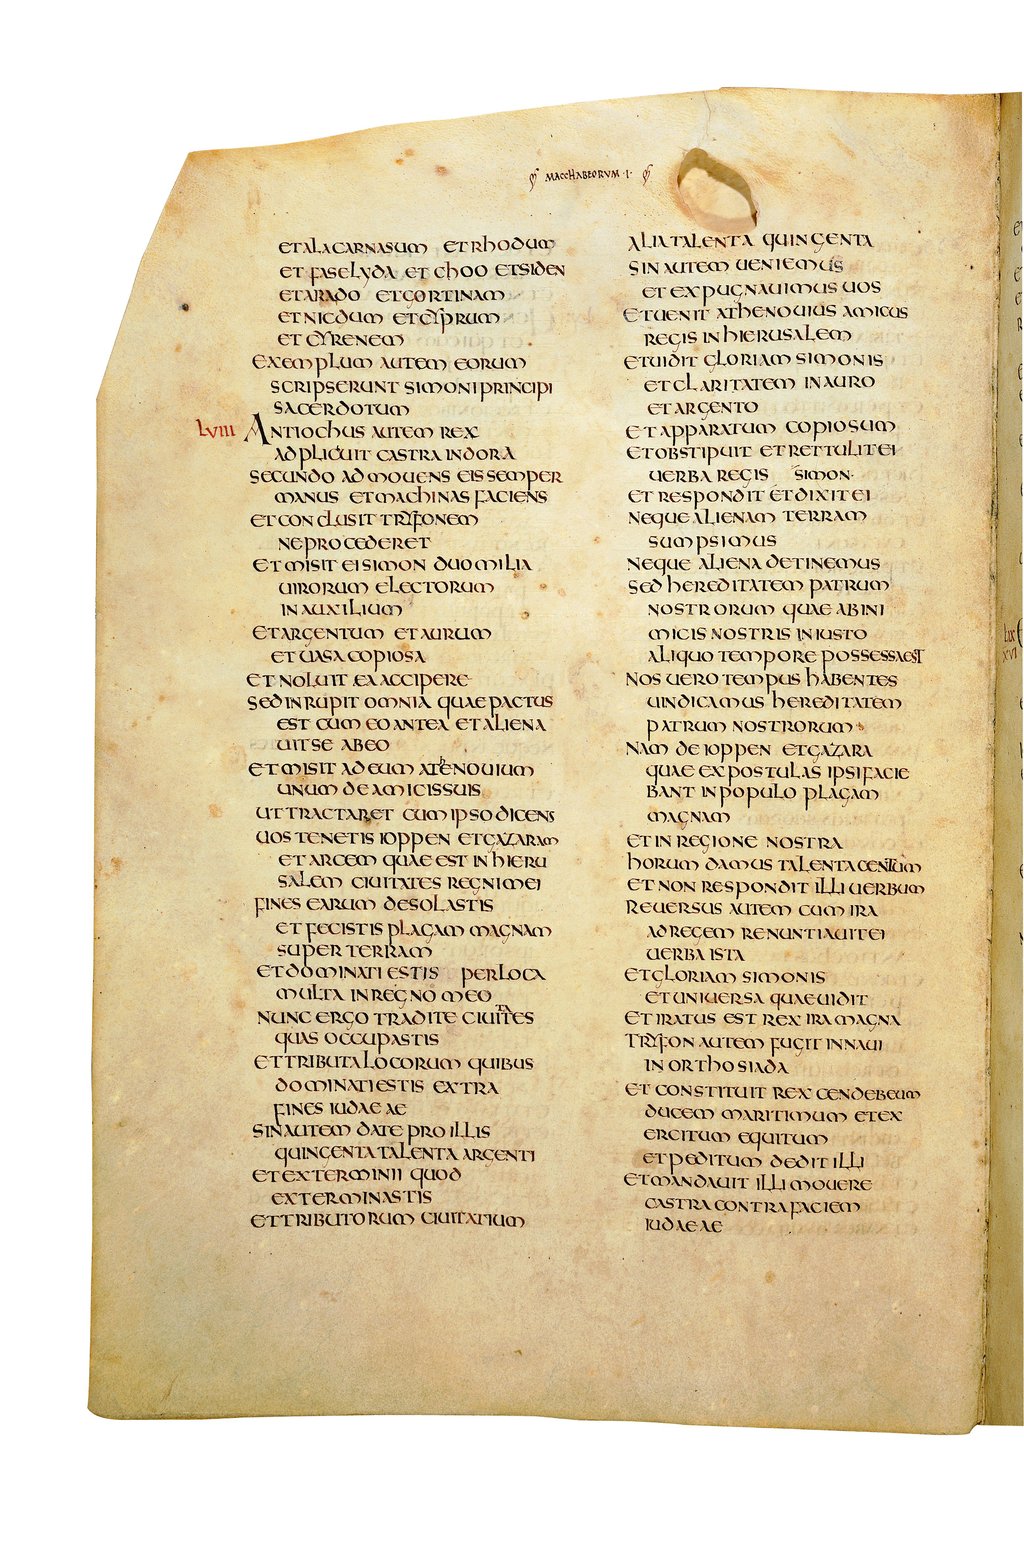 MACCHABEORUM · I ·
ET ALACARNASUM ET RHODUM
ET FASELYDA ET CHOO ET SIDEN
ET ARADO ET GORTINAM
ET NICDUM ET CYPRUM
ET CYRENEM
EXEMPLUM AUTEM EORUM
SCRIPSERUNT SIMONI PRINCIPI
SACERDOTUM
LVIII ANTIOCHUS AUTEM REX
ADPLICUIT CASTRA IN DORA
SECUNDO ADMOUENS EIS SEMPER
MANUS ET MACHINAS FACIENS
ET CONCLUSIT TRYFONEM
NE PROCEDERET
ET MISIT EI SIMON DUO MILIA
UIRORUM ELECTORUM
IN AUXILIUM
ET ARGENTUM ET AURUM
ET UASA COPIOSA
ET NOLUIT EA ACCIPERE
SED INRUPIT OMNIA QUAE PACTUS
EST CUM EO ANTEA ET ALIENA
UIT SE AB EO
ET MISIT AD EUM ATHENOUIUM
UNUM DE AMICIS SUIS
UT TRACTARET CUM IPSO DICENS
UOS TENETIS IOPPEN ET GAZARAM
ET ARCEM QUAE EST IN HIERU
SALEM CIUITATES REGNI MEI
FINES EARUM DESOLASTIS
ET FECISTIS PLAGAM MAGNAM
SUPER TERRAM
ET DOMINATI ESTIS PER LOCA
MULTA IN REGNO MEO
NUNC ERGO TRADITE CIUITATES
QUAS OCCUPASTIS
ET TRIBUTA LOCORUM QUIBUS
DOMINATI ESTIS EXTRA
FINES IUDAEAE
SIN AUTEM DATE PRO ILLIS
QUINGENTA TALENTA ARGENTI
ET EXTERMINII QUOD
EXTERMINASTIS
ET TRIBUTORUM CIUITATIUM
ALIA TALENTA QUINGENTA
SIN AUTEM UENIEMUS
ET EXPUGNAUIMUS UOS
ET UENIT ATHENOUIUS AMICUS
REGIS IN HIERUSALEM
ET UIDIT GLORIAM SIMONIS
ET CLARITATEM IN AURO
ET ARGENTO
ET APPARATUM COPIOSUM
ET OBSTIPUIT ET RETTULIT EI
UERBA REGIS SIMON·
ET RESPONDIT ET DIXIT EI
NEQUE ALIENAM TERRAM
SUMPSIMUS
NEQUE ALIENA DETINEMUS
SED HEREDITATEM PATRUM
NOSTRORUM QUAE AB INI
MICIS NOSTRIS INIUSTO
ALIQUO TEMPORE POSSESSA EST
NOS UERO TEMPUS HABENTES
UINDICAMUS HEREDITATEM
PATRUM NOSTRORUM
NAM DE IOPPEN ET GAZARA
QUAE EXPOSTULAS IPSI FACIE
BANT IN POPULO PLAGAM
MAGNAM
ET IN REGIONE NOSTRA
HORUM DAMUS TALENTA CENTUM
ET NON RESPONDIT ILLI UERBUM
REUERSUS AUTEM CUM IRA
AD REGEM RENUNTIAUIT EI
UERBA ISTA
ET GLORIAM SIMONIS
ET UNIUERSA QUAE UIDIT
ET IRATUS EST REX IRA MAGNA
TRYFON AUTEM FUGIT IN NAUI
IN ORTHOSIADA
ET CONSTITUIT REX CENDEBEUM
DUCEM MARITIMUM ET EX
ERCITUM EQUITUM
ET PEDITUM DEDIT ILLI
ET MANDAUIT ILLI MOUERE
CASTRA CONTRA FACIEM
IUDAEAE